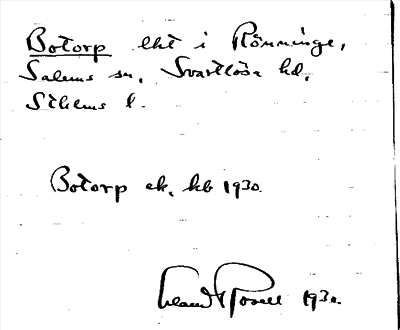 Botorp lht i Rönninge,
Salems sn, Svartlösa hd,
Sthlms l.
Botorp ek. kb 1930.
1930.